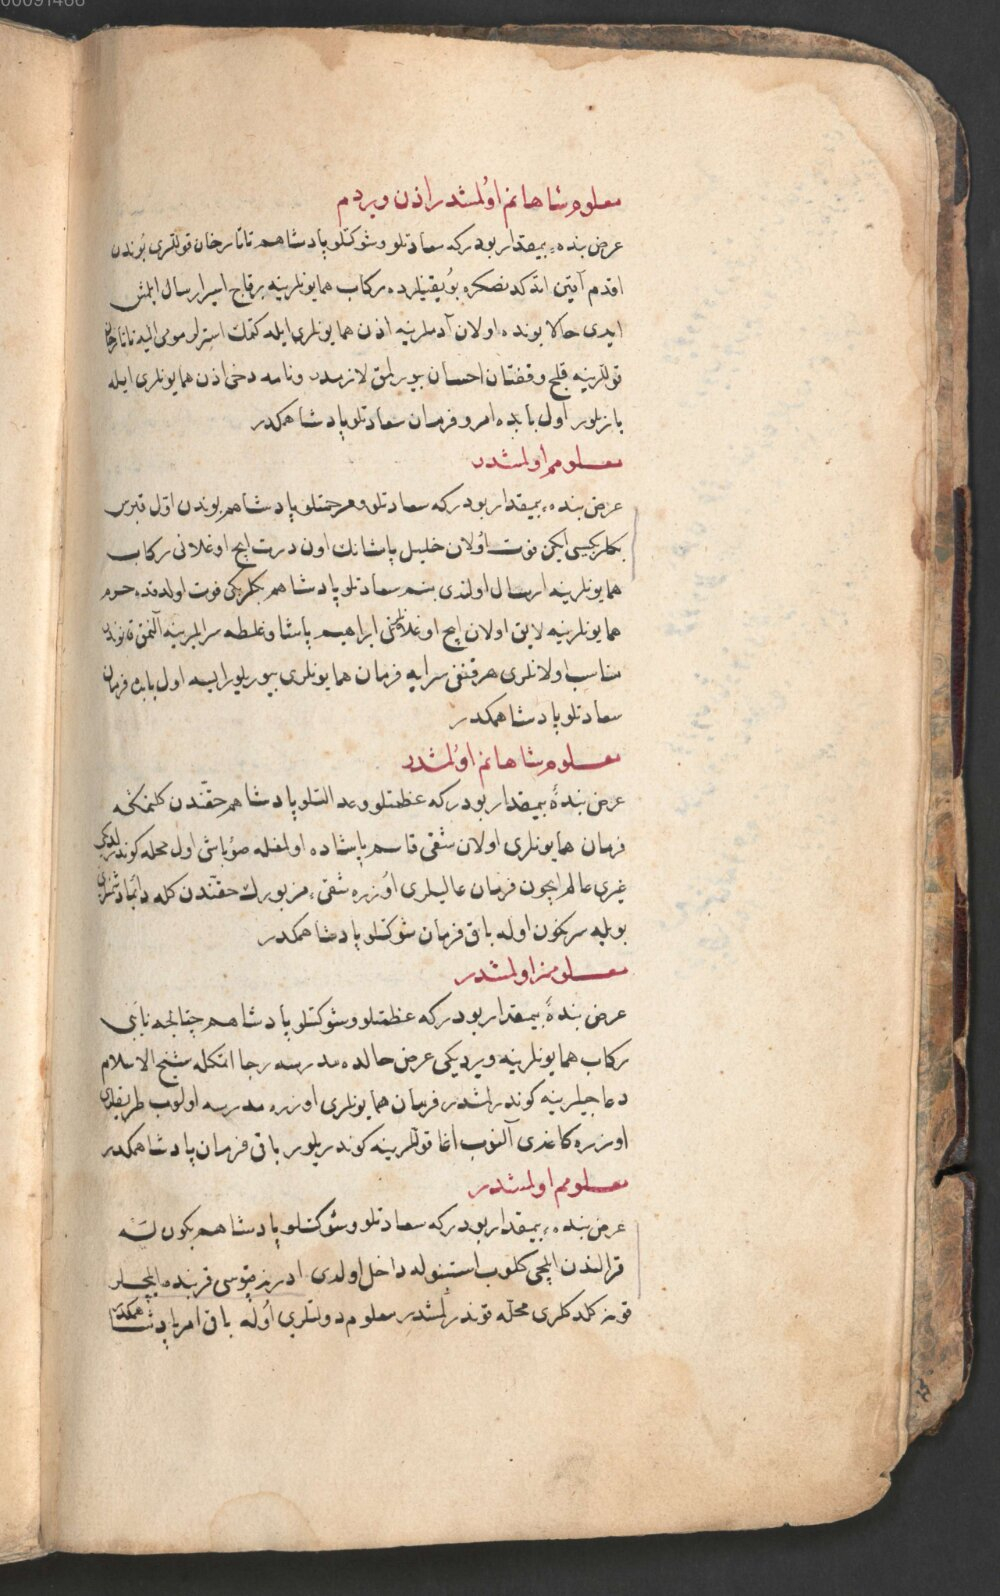 00091466
معلوم شاهانم اولمشدر اذن ويردم
عرض بنده‌ء بيمقدار بودركه سعادتلو و شوكتلو پادشاهم تاتارخان قوللرى بوندن
اقدم آقين اتدكدنصكره بويقينلرده ركاب همايونلرينه برقاج اسير ارسال ايلمش
ايدى حاكا بونده اولان آدملرينه اذن همايونلرى ايله كتمك استرلر مومى اليه تاتارخان
قوللرينه قلج و قفتان احسان بيورلمق لازمدر و نامه دخى اذن همايونلرى ايله
يازيلور اول بابده امر و فرمان سعادتلو پادشاهمكدر
معلومم اولمشدر
عرض بنده‌ء بيمقدار بودركه سعادتلو و مرحمتلو پادشاهم بوندن اول قبرس
بكلربكيسى ايكن فوت اولان خليل پاشانك اون درت ايچ اوغلانى ركاب
همايونلرينه ارسال اولندى بنم سعادتلو پادشاهم بكلربكى فوت اولدقده حرم
همايونلرينه لايق اولان ايچ اوغلانلرينى ابراهيم پاشا و غلطه سرايلرينه آلنمق قانوندر
مناسب اولانلرى هر قنغى سرايه فرمان همايونلرى بيوريلورايسه اول بابده فرمان
سعادتلو پادشاهمكدر
معلوم شاهانم اولمشدر
عرض بندهٔ بيمقدار بودركه عظمتلو و عدالتلو پادشاهم حقندن كلنمكچه
فرمان همايونلرى اولان شقى قاسم پاشاده اولمغله صوباشى اول محله كوندرلدكى
غيرى عالم ايچون فرمان عاليلرى اوزره شقىء مزبورك حقندن كله دائما دشمنلرى
بويله سرنكون اوله باقى فرمان شوكتلو پادشاهمكدر
معلومز اولمشدر
عرض بندهٔ بيمقدار بودركه عظمتلو و شوكتلو پادشاهم چتالجه نائبى
ركاب همايونلرينه ويرديكى عرض حالده مدرسه رجا اتمكله شيخ الاسلام
دعاجيلرينه كوندرلمشدر فرمان همايونلرى اوزره مدرسه اولوب طريقلرى
اوزره كاغدى آلنوب اغا قوللرينه كوندريلور باقى فرمان پادشاهمكدر
معلومم اولمشدر
عرض بنده‌ء بيمقدار بودركه سعادتلو و شوكتلو پادشاهم بكون نسه
قرالندن ايلچى كلوب استنبوله داخل اولدى ادرنه قپوسى قربنده ايلچيلر
قونه كلدكلرى محله قوندرلمشدر معلوم دولتلرى اوله باقى امر پادشاهمكدر